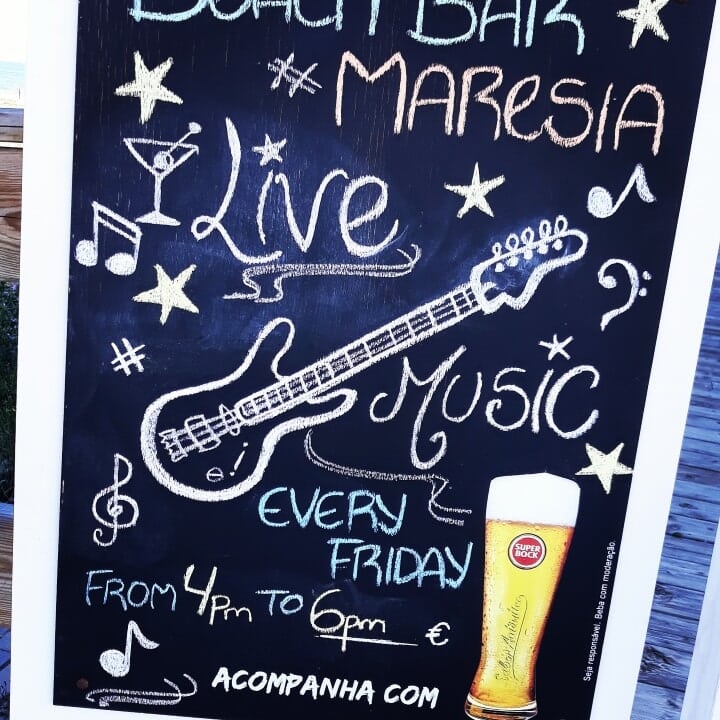 BEACH BAR
MARESIA
Live
Music
EVERY
FRIDAY
FROM 4pm TO 6pm €
ACOMPANHA COM
SUPER
BOCK
Seja responsável. Beba com moderação.